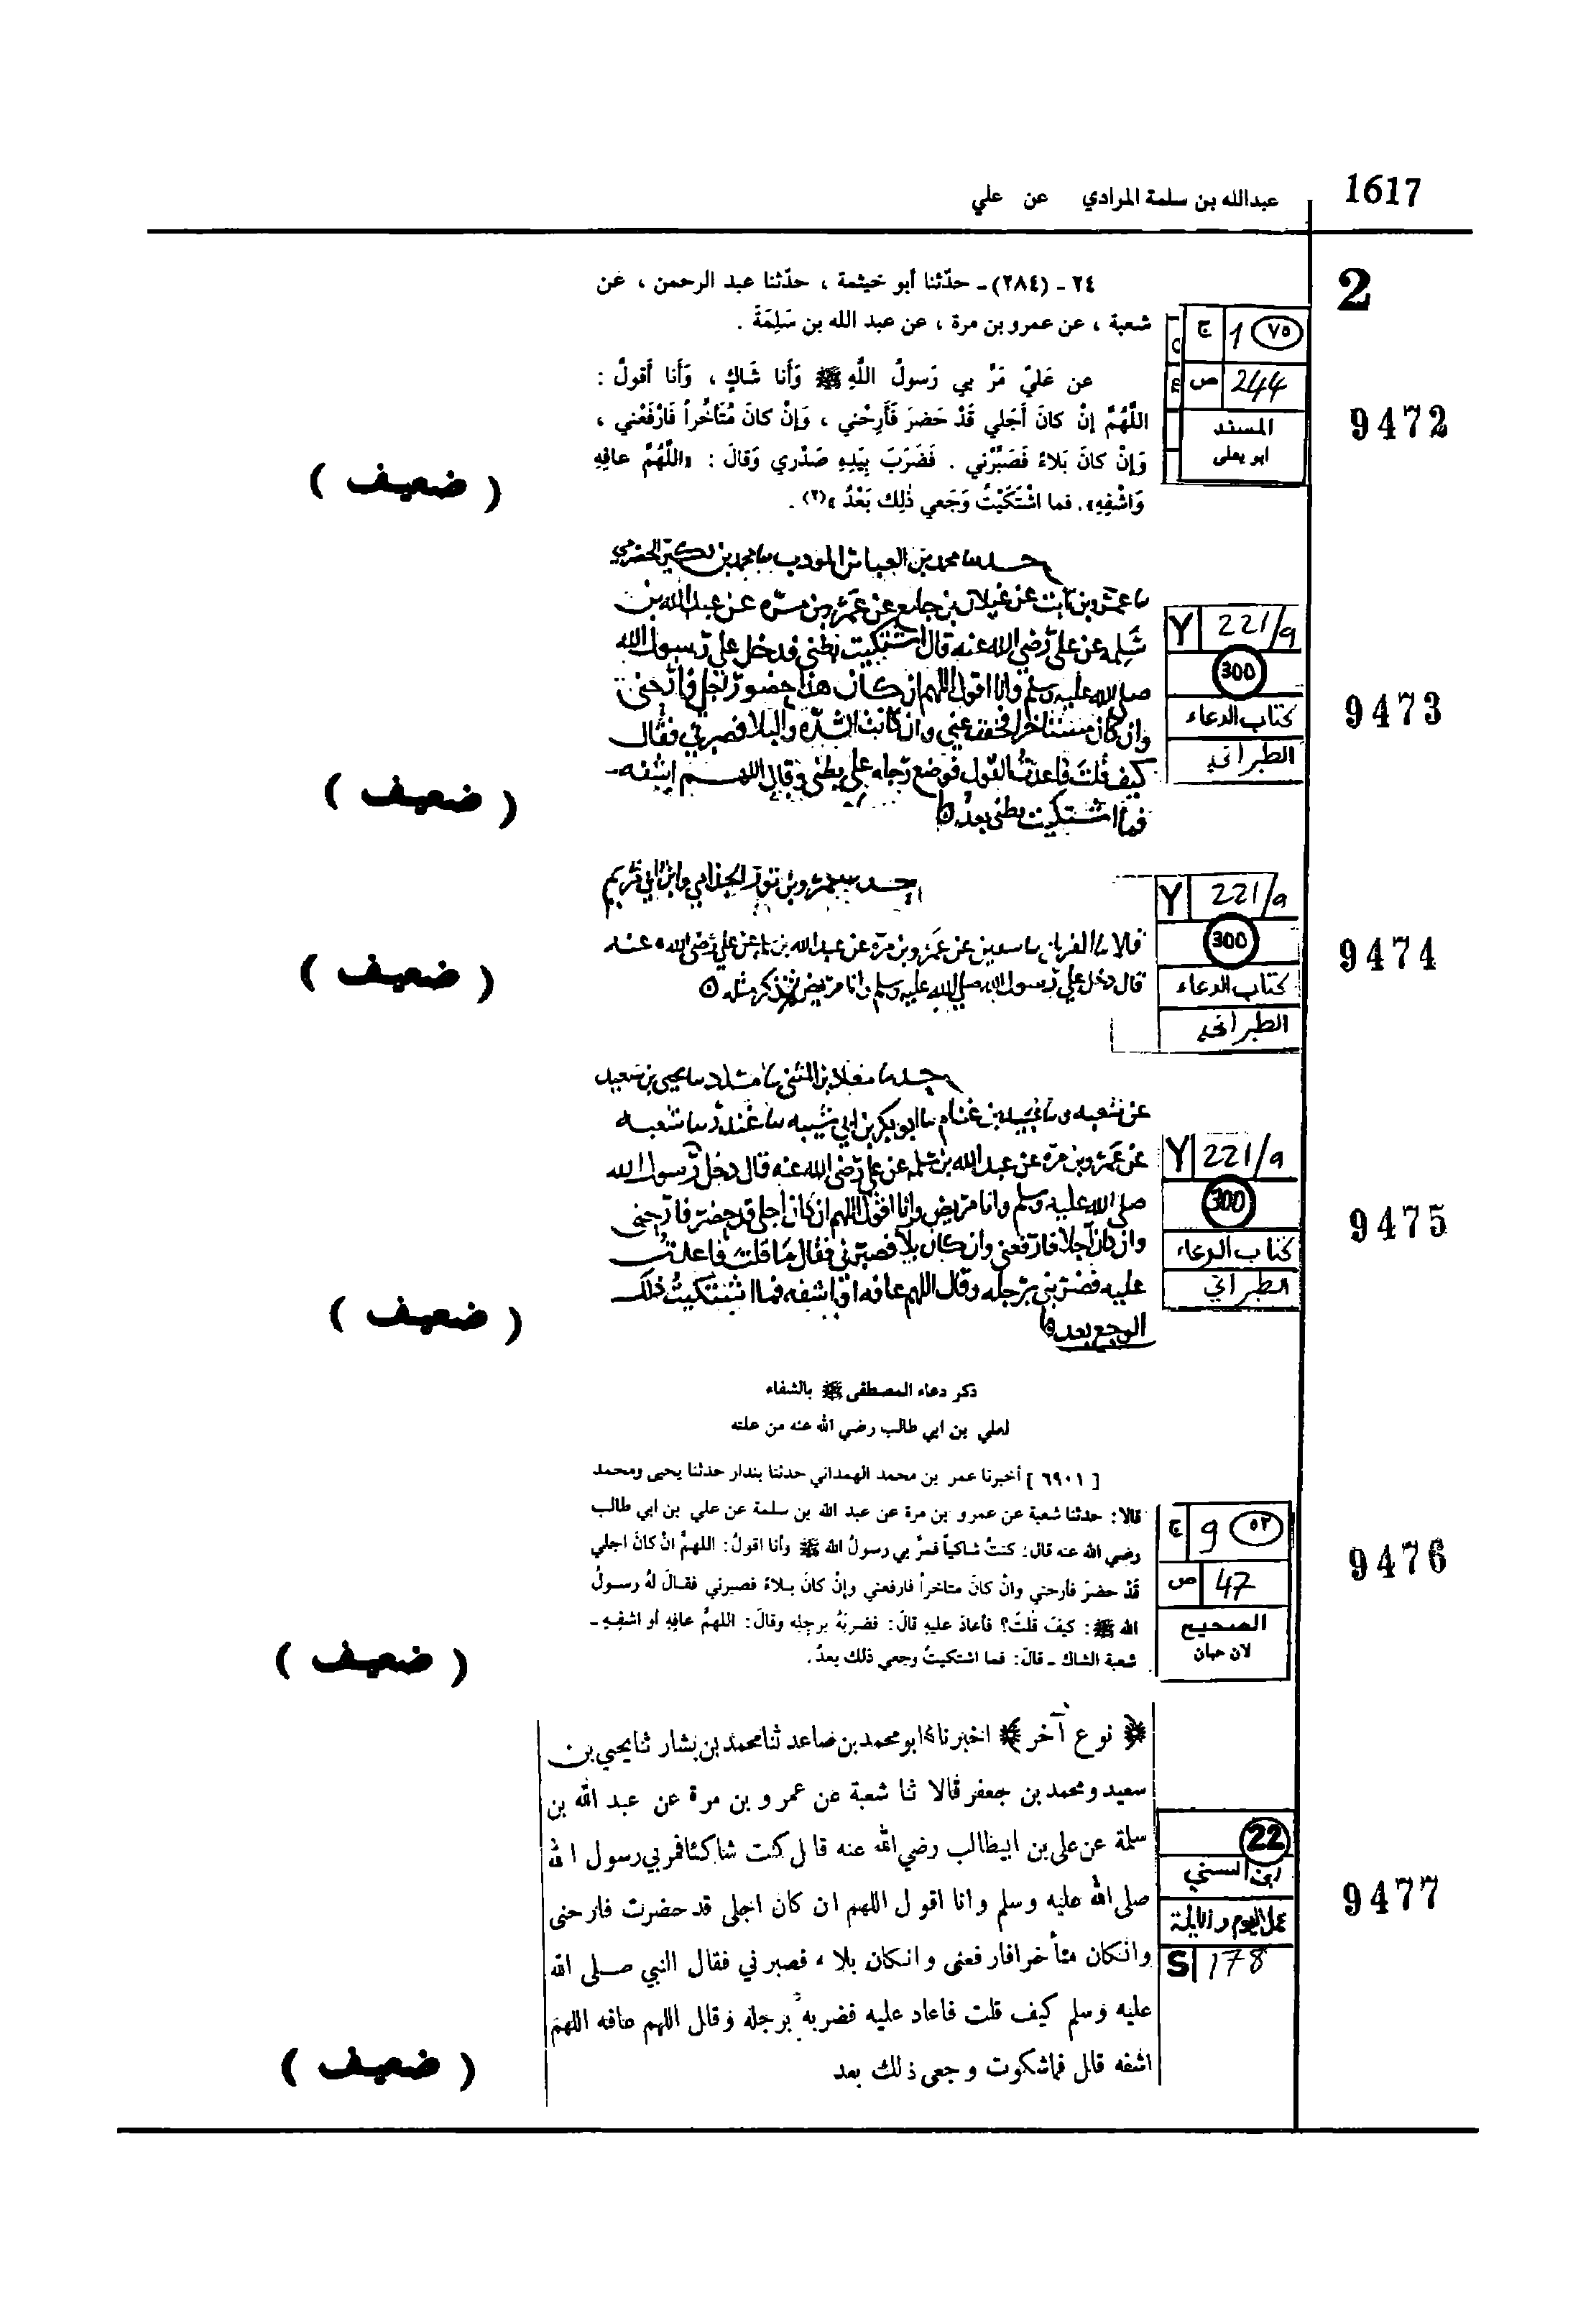 1617
عبدالله بن سلمة المرادي عن علي
2
٢٤ - (٢٨٤) - حدّثنا أبو خيثمة ، حدّثنا عبد الرحمن ، عن
شعبة ، عن عمرو بن مرة ، عن عبد الله بن سَلِمَةَ .
عن عَليّ مَرَّ بي رَسولُ اللَّهِ ﷺ وَأَنا شَاكٍ ، وَأَنا أَقولُ :
اللَّهُمَّ إنْ كانَ أَجَلي قَدْ حَضرَ فَأَرِحْني ، وَإنْ كانَ مُتَأَخِّراً فَارْفَعْني ،
وَإنْ كانَ بَلاءً فَصَبِّرْني . فَضَرَبَ بِيَدِهِ صَدْري وَقالَ : «اللَّهُمَّ عافِهِ
وَاشْفِهِ». فما اشْتَكَيْتُ وَجَعي ذٰلِك بَعْدُ »(٢) .
٧٥ 1 ج
244 ص
المسند
ابو يعلى
9472
( ضعيف )
حدثنا محمد بن العباس المودب ثنا محمد بن بكير الحضرمي
ثنا عمرو بن ثابت عن غيلان بن جامع عن عمرو بن مره عن عبد الله بن
سلمه عن علي رضي الله عنه قال اشتكيت بطني فدخل علي رسول الله
صلى الله عليه وسلم وانا اقول اللهم ان كان هذا حضور اجلي فارحني
وان كان مستاخرا فخفف عني وان كانت الشده والبلا فصبرني فقال
كيف قلت فاعدت القول فوضع رجله على بطني وقال اللهم اشفه
فما اشتكيت بطني بعد
Y 221/a
300
كتاب الدعاء
الطبراني
9473
( ضعيف )
حدثنا عمرو بن ثور الجذامي وابن ابي مريم
قالا ثنا الفريابي ثنا سفين عن عمرو بن مره عن عبد الله بن سلمه عن علي رضي الله عنه
قال دخل علي رسول الله صلى الله عليه وسلم وانا مريض فذكر مثله
Y 221/a
300
كتاب الدعاء
الطبراني
9474
( ضعيف )
حدثنا معاذ بن المثنى ثنا مسدد ثنا يحيى بن سعيد
عن شعبه وثنا عبيد بن غنام ثنا ابو بكر بن ابي شيبه ثنا غندر ثنا شعبه
عن عمرو بن مره عن عبد الله بن سلمه عن علي رضي الله عنه قال دخل رسول الله
صلى الله عليه وسلم وانا مريض وانا اقول اللهم ان كان اجلي قد حضر فارحني
وان كان آجلا فارفعني وان كان بلا فصبرني فقال ما قلت فاعدت
عليه فضربني برجله وقال اللهم عافه او اشفه فما اشتكيت ذلك
الوجع بعد
Y 221/a
300
كتاب الدعاء
الطبراني
9475
( ضعيف )
ذكر دعاء المصطفى ﷺ بالشفاء
لعلي بن ابي طالب رضي الله عنه من علته
[ ٦٩٠١ ] أخبرنا عمر بن محمد الهمداني حدثنا بندار حدثنا يحيى ومحمد
قالا: حدثنا شعبة عن عمرو بن مرة عن عبد الله بن سلمة عن علي بن ابي طالب
رضي الله عنه قال: كنتُ شاكياً فمرَّ بي رسولُ الله ﷺ وأنا اقولُ: اللهمَّ انْ كانَ اجلي
قَدْ حضرَ فأرحني وانْ كانَ متاخراً فارفعني وإنْ كانَ بلاءً فصبرني فقالَ لهُ رسولُ
الله ﷺ: كيفَ قلتَ؟ فأعادَ عليهِ قالَ: فضربَهُ برجلِه وقالَ: اللهمَّ عافِهِ أو اشفِهِ -
شعبة الشاك - قالَ: فما اشتكيتُ وجعي ذلك بعدُ.
٥٣ 9 ج
47 ص
الصحيح
لابن حبان
9476
( ضعيف )
﴿ نوع آخر ﴾ اخبرنا ابو محمد بن صاعد ثنا محمد بن بشار ثنا يحيى بن
سعيد ومحمد بن جعفر قالا ثنا شعبة عن عمرو بن مرة عن عبد الله بن
سلمة عن على بن ابيطالب رضي الله عنه قال كنت شاكئا فمر بي رسول الله
صلى الله عليه وسلم وانا اقول اللهم ان كان اجلى قد حضرت فارحنى
وانكان متأخرا فارفعنى وانكان بلاء فصبرني فقال النبي صلى الله
عليه وسلم كيف قلت فاعاد عليه فضربه برجله وقال اللهم عافه اللهم
اشفه قال فماشكوت وجعى ذلك بعد
22
ابن السني
عمل اليوم والليلة
S 178
9477
( ضعيف )